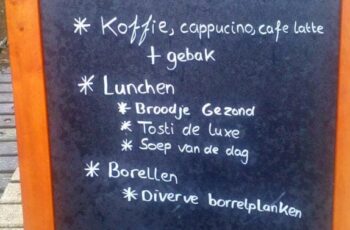 * Koffie, cappucino, cafe latte
+ gebak
* Lunchen
* Broodje Gezond
* Tosti de luxe
* Soep van de dag
* Borellen
* Diverve borrelplanken